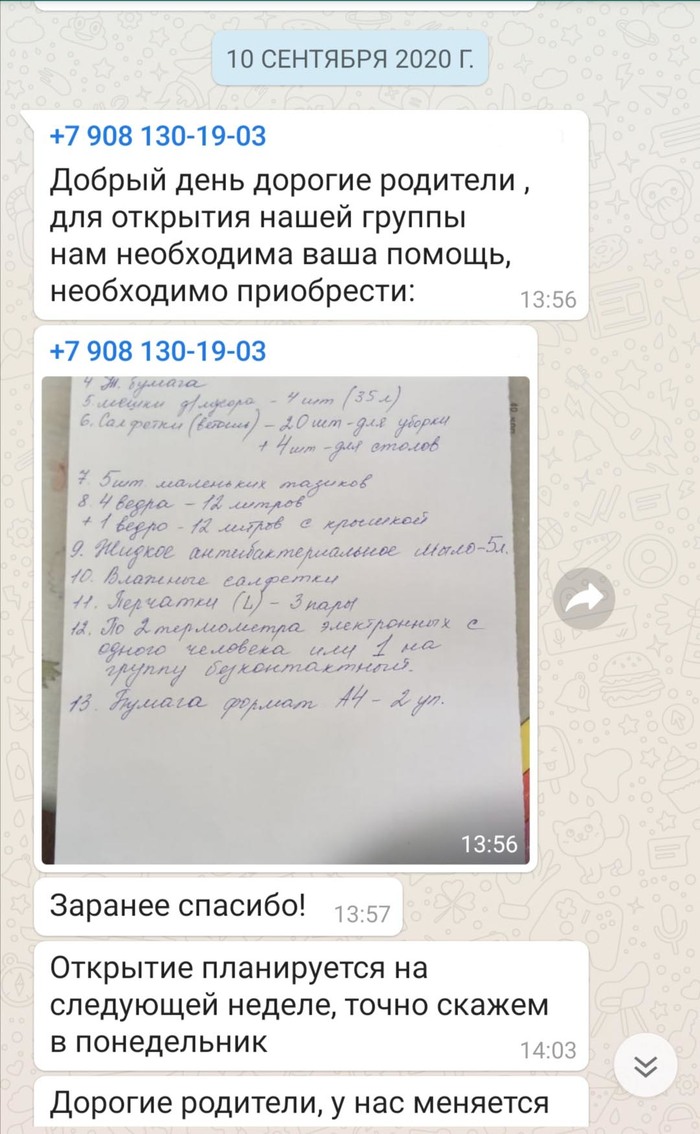 10 СЕНТЯБРЯ 2020 Г.
+7 908 130-19-03
Добрый день дорогие родители ,
для открытия нашей группы
нам необходима ваша помощь,
необходимо приобрести:
13:56
+7 908 130-19-03
4 Т. бумага
5. мешки д/мусора - 4 шт (35 л)
6. Салфетки (ветошь) - 20 шт - для уборки
+ 4 шт - для столов
7. 5 шт маленьких тазиков
8. 4 ведра - 12 литров
+ 1 ведро - 12 литров с крышкой
9. Жидкое антибактериальное мыло - 5л.
10. Влажные салфетки
11. Перчатки (L) - 3 пары
12. По 2 термометра электронных с
одного человека или 1 на
группу безконтактный.
13. Бумага формат А4 - 2 уп.
13:56
Заранее спасибо!
13:57
Открытие планируется на
следующей неделе, точно скажем
в понедельник
14:03
Дорогие родители, у нас меняется